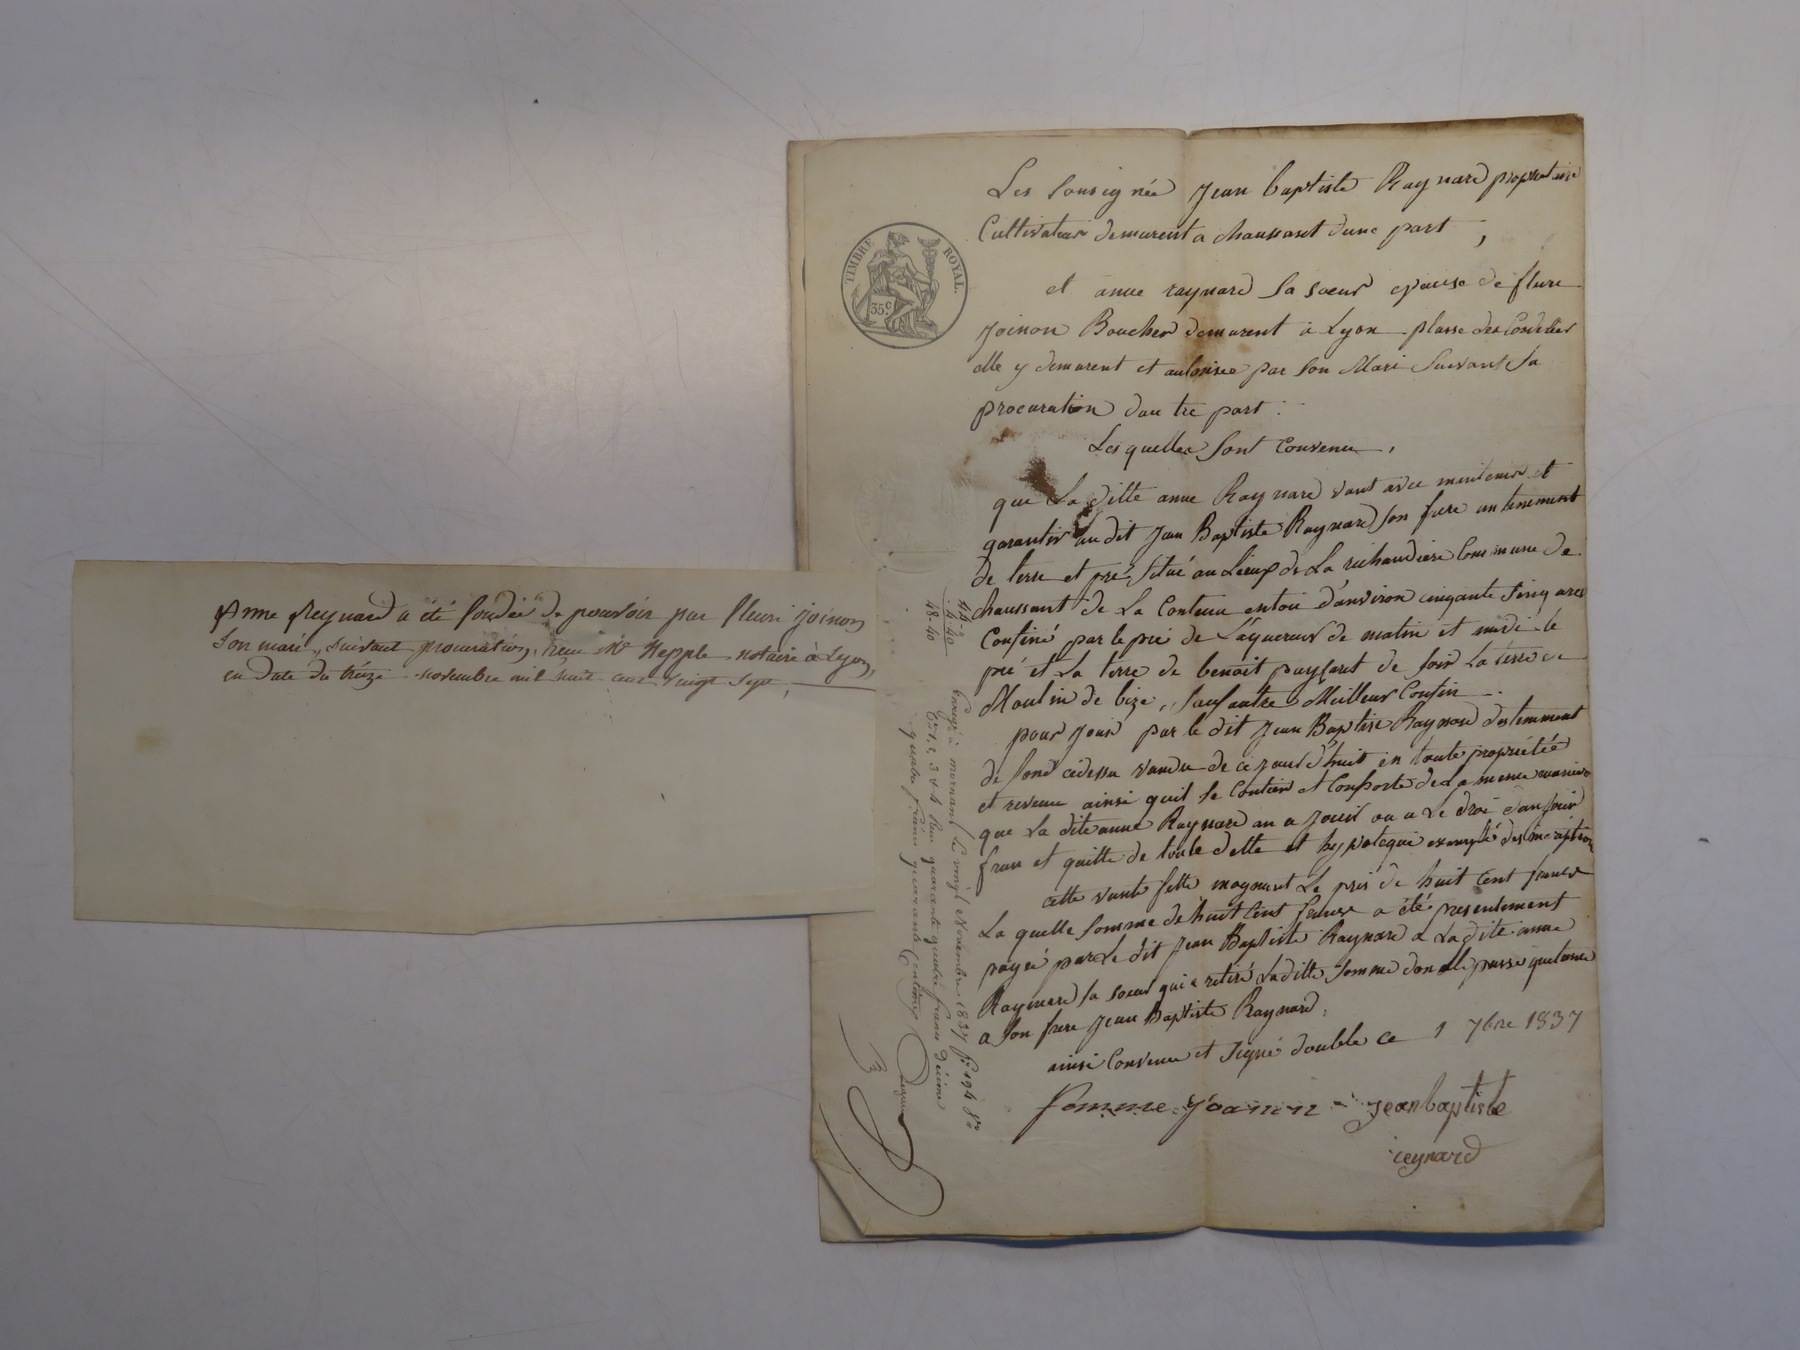 Anne Reynard a été fondée de pouvoir par fleuri joinon
son mari, suivant procuration, reçue Me Hepple notaire à Lyon,
en date du treize novembre mil huit cent vingt sept,
TIMBRE ROYAL.
35c
Les Sousignée Jean baptiste Raynard propriétaire
Cultivateur demurent a Chaussant dune part ;
et anne raynard sa soeur epouse de fleuri
joinon Boucher demurent à Lyon plasse des Cordellier
elle y demurent et autorisee par son Mari Suivant sa
procuration dautre part :
Les quelles sont Convenu,
que La ditte anne Raynard vant avec mintenir et
garantir au dit Jean Baptiste Raynard son frere un tenement
de terre et pré, Situé au Lieux de La richaudiere Commune de
Chaussant de La Contenu entou d'anviron cinquante Sinq ares
Confiné par le pré de de matin et midi le
pré et La terre de benoit de soir La terre de
Moulin de bize, Sauf autre Meilleur Confin
pour jouir par le dit Jean Baptise Raynard du tenement
de fond cidessu vandu de ce jourd'huit en toute propriétée
et revenu ainsi quil se Contien et Conporte de La meme maniere
que La dite anne Raynard an a jouit ou a Le droi dan jouir
fran et quitte de toute dette et hypoteque exempté
cette vante fette moynant Le pris de huit Cent francs
La quelle Somme de huit Cent francs a été presentement
payé par Le dit Jean Baptiste Raynard a La dite anne
Raynard sa soeur qui a retiré La ditte Somme don elle passe quitance
a son frere Jean Baptiste Raynard.
ainsi Convenu et Signé double ce 1 7bre 1837
femme joanon - jeanbaptiste
reynard
44-"
4-40
48-40
Enregé à mornant le vingt Novembre 1837 fo 194 Ro
Ces 1, 2, 3 & 4 Reçu quarante quatre francs décime
quatre francs quarante Centimes